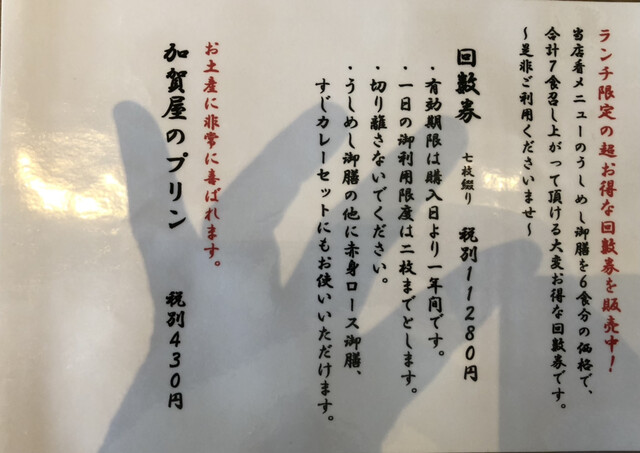 ランチ限定の超お得な回数券を販売中！
当店看メニューのうしめし御膳を6食分の価格で、
合計7食召し上がって頂ける大変お得な回数券です。
～是非ご利用くださいませ～
回数券 七枚綴り 税別11280円
・有効期限は購入日より一年間です。
・一日の御利用限度は二枚までとします。
・切り離さないでください。
・うしめし御膳の他に赤身ロース御膳、
すじカレーセットにもお使いいただけます。
お土産に非常に喜ばれます。
加賀屋のプリン 税別430円